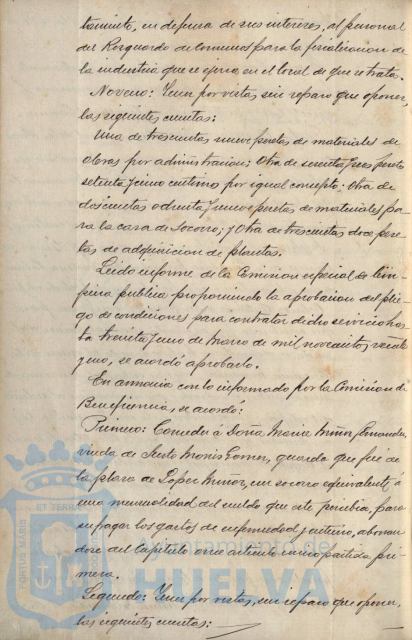 tamiento, en defensa de sus intereses, al personal
del Resguardo de Consumos para la fiscalizacion de
la industria que se ejerce en el local de que se trata.
Noveno: Tener por vistas, sin reparo que oponer,
las siguientes cuentas:
Una de trescientas nueve pesetas de materiales de
obras por administracion; Otra de sesenta y tres pesetas
setenta y cinco centimos por igual concepto; Otra de
doscientas ochenta y nueve pesetas de materiales pa
ra la casa de Socorro; y Otra de trescientas doce pese
tas de adquisicion de plantas.
Leido informe de la Comision especial de lim
pieza publica proponiendo la aprobacion del plie
go de condiciones para contratar dicho servicio has
ta treinta y uno de Marzo de mil novecientos veinte
y uno, se acordó aprobarlo.
En armonia con lo informado por la Comision de
Beneficencia, se acordó:
Primero: Conceder á Doña Maria Muñoz Fernandez
viuda de Sixto Monis Gomez, guarda que fué de
la plaza de Lopez Munoz, un socorro equivalente á
una mensualidad del sueldo que este percibia, para
sufragar los gastos de enfermedad y entierro, abonan
dose del capitulo once articulo unico partida pri
mera.
Segundo: Tener por vistas, sin reparo que oponer,
las siguientes cuentas:
ET TERRÆ
PORTUS MARIS
Ayuntamiento de
HUELVA